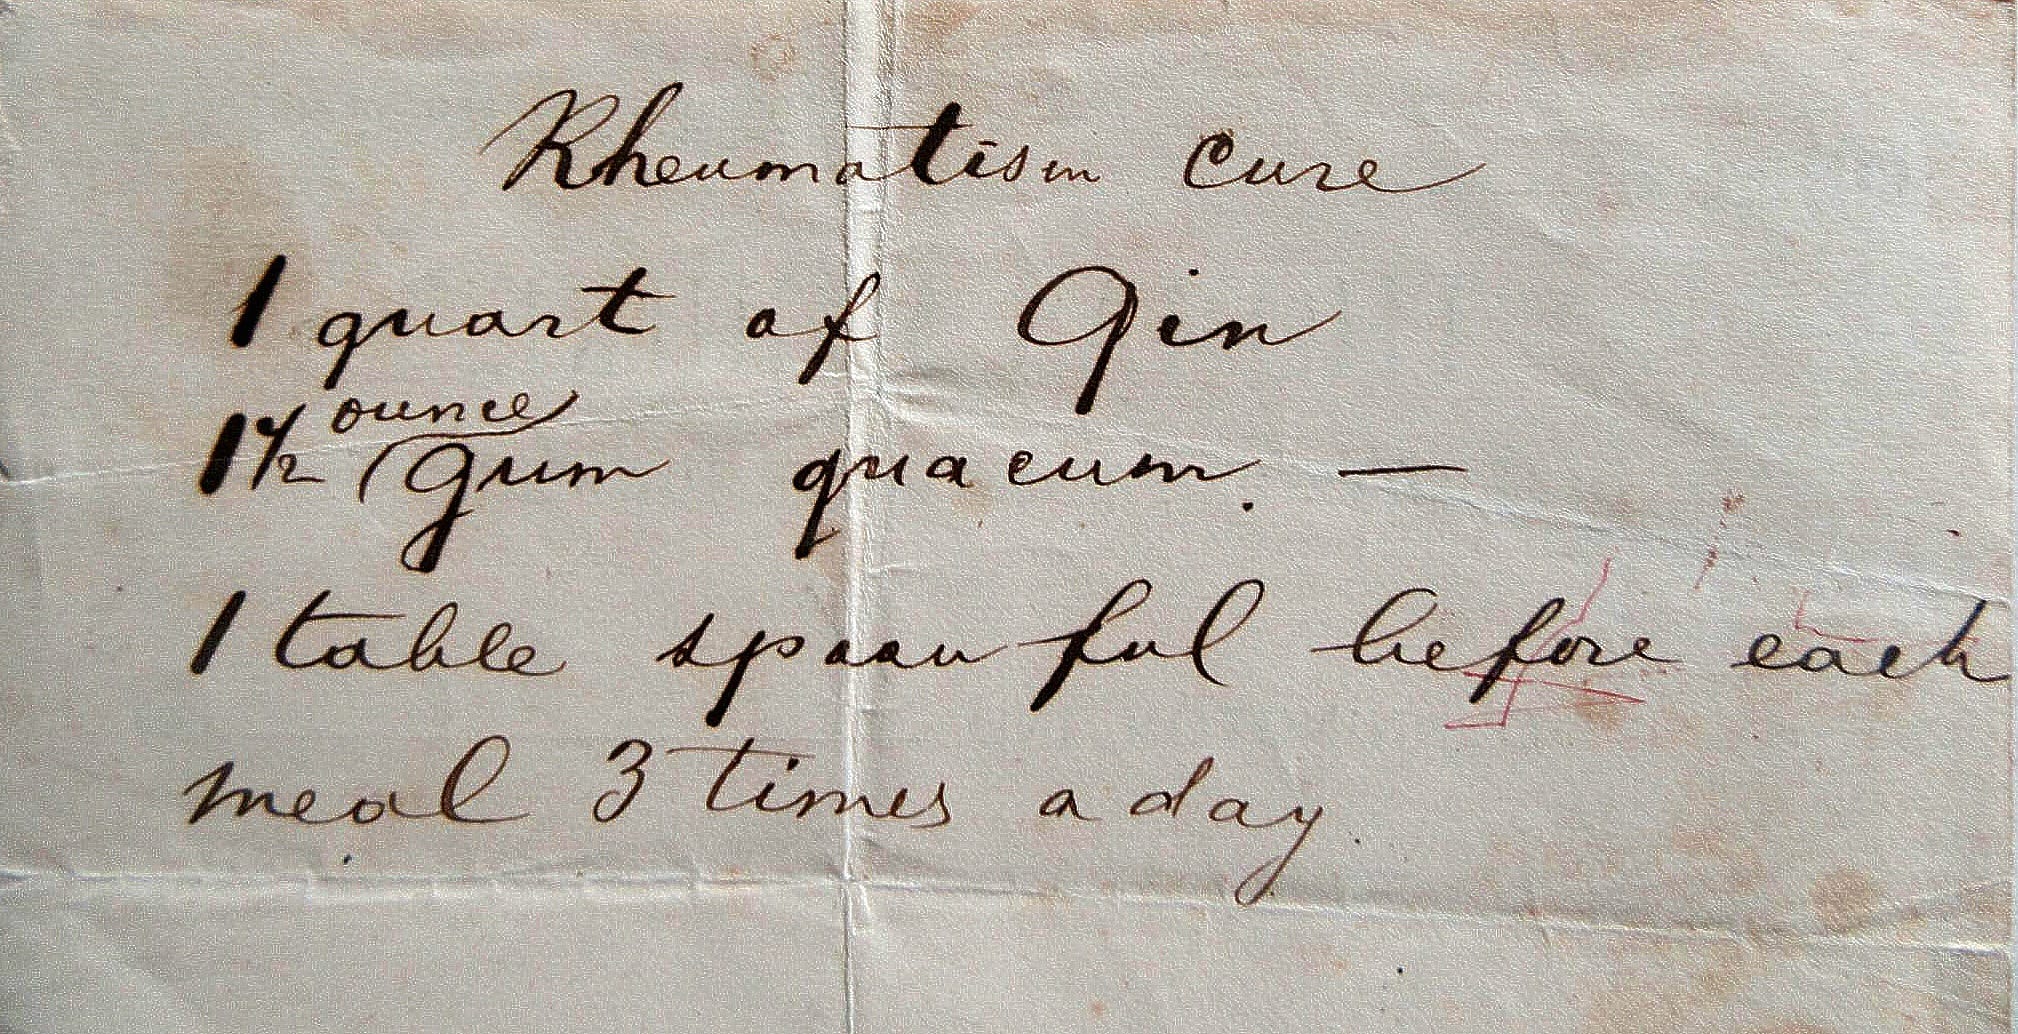 Rheumatism Cure
1 quart of Gin
1 1/2 ounce Gum quacum. —
1 table spoonful before each
meal 3 times a day.